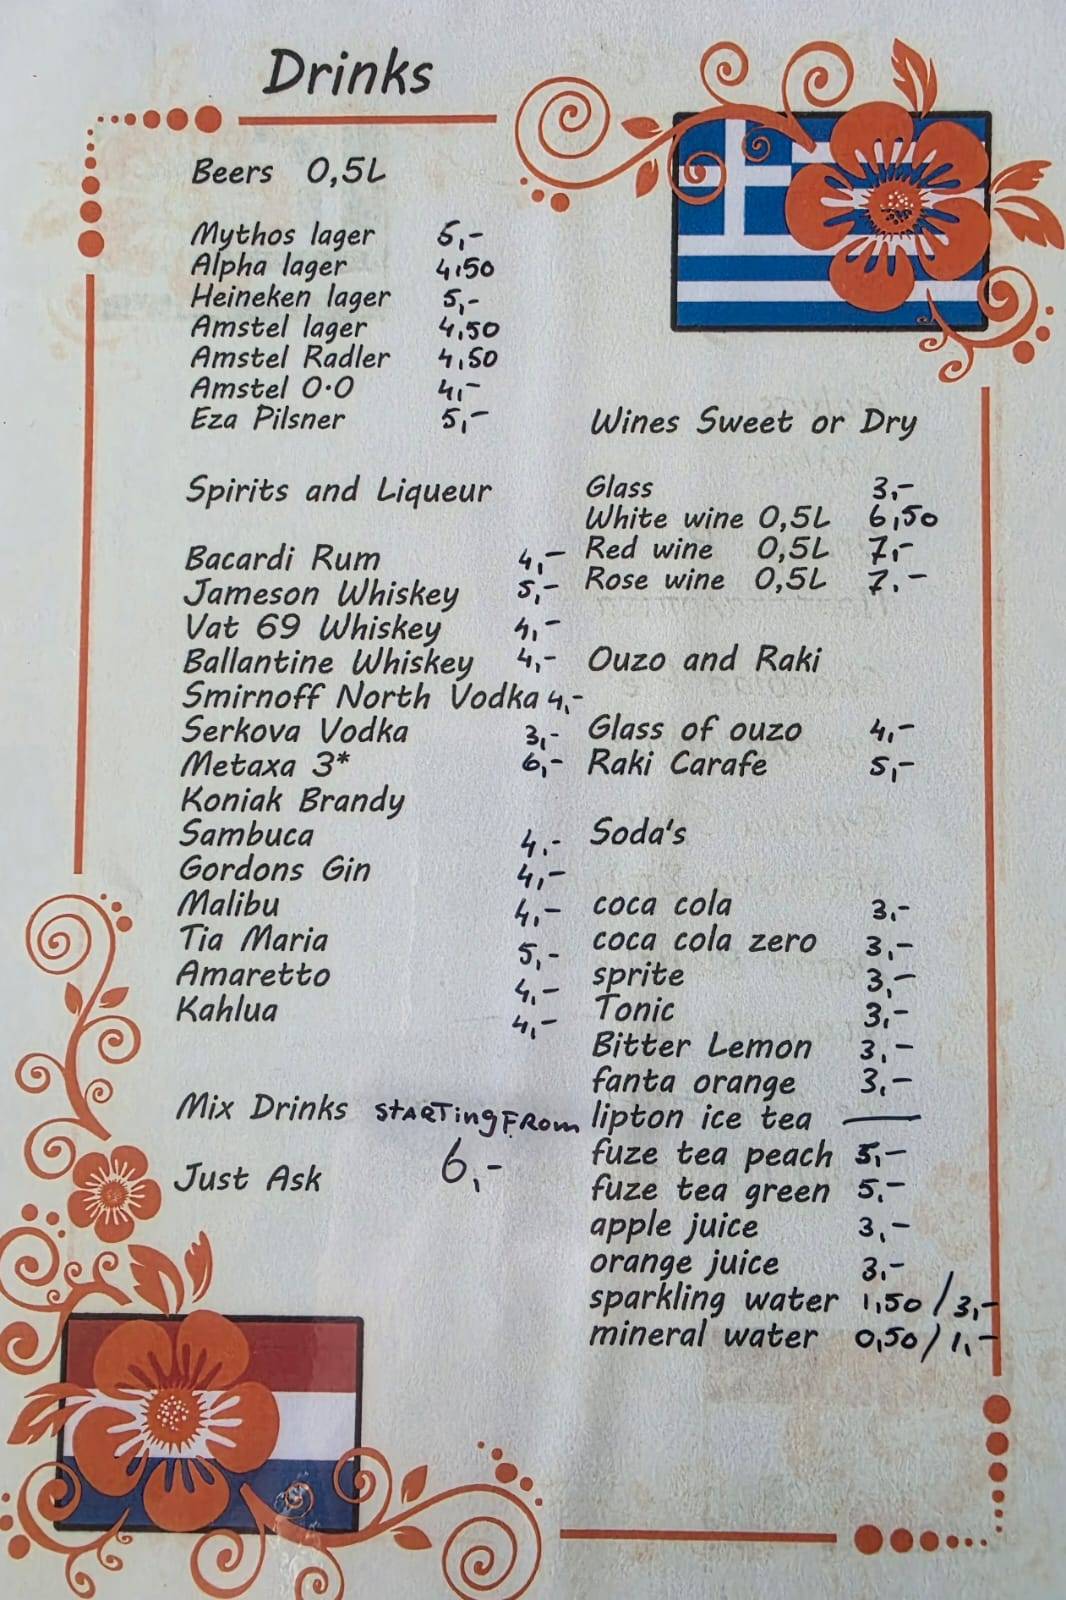 Drinks
Beers 0,5L
Mythos lager 5,-
Alpha lager 4,50
Heineken lager 5,-
Amstel lager 4,50
Amstel Radler 4,50
Amstel 0·0 4,-
Eza Pilsner 5,-
Spirits and Liqueur
Bacardi Rum 4,-
Jameson Whiskey 5,-
Vat 69 Whiskey 4,-
Ballantine Whiskey 4,-
Smirnoff North Vodka 4,-
Serkova Vodka 3,-
Metaxa 3* 6,-
Koniak Brandy
Sambuca 4,-
Gordons Gin 4,-
Malibu 4,-
Tia Maria 5,-
Amaretto 4,-
Kahlua 4,-
Mix Drinks STARTING FROM
Just Ask 6,-
Wines Sweet or Dry
Glass 3,-
White wine 0,5L 6,50
Red wine 0,5L 7,-
Rose wine 0,5L 7,-
Ouzo and Raki
Glass of ouzo 4,-
Raki Carafe 5,-
Soda's
coca cola 3,-
coca cola zero 3,-
sprite 3,-
Tonic 3,-
Bitter Lemon 3,-
fanta orange 3,-
lipton ice tea —
fuze tea peach 5,-
fuze tea green 5,-
apple juice 3,-
orange juice 3,-
sparkling water 1,50 / 3,-
mineral water 0,50 / 1,-